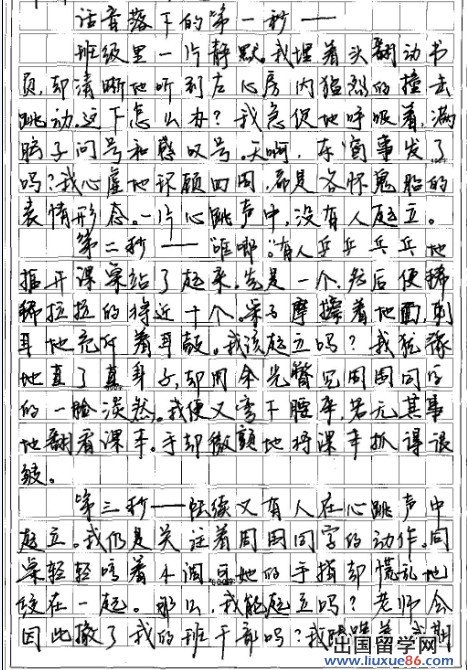 话音落下的第一秒——
班级里一片静默。我埋着头翻动书
页,却清晰地听到左心房内猛烈的撞击
跳动。这下怎么办?我急促地呼吸着,满
脑子问号和感叹号。天啊,东窗事发了
吗?我心虚地环顾四周,都是各怀鬼胎的
表情形态。一片心跳声中,没有人起立。
第二秒——“哐啷”有人乒乒乓乓地
拒开课桌站了起来。先是一个,然后便稀
稀拉拉的将近十个。桌子摩擦着地面,刺
耳地充斥着耳鼓。我该起立吗?我犹豫
地直了直身子,却用余光瞥见周围同学
的一脸淡然。我便又弯下腰来,若无其事
地翻看课本。手却微颤地将课本抓得很
皱。
第三秒——陆续又有人在心跳声中
起立。我仍是关注着周围同学的动作。同
桌轻轻哼着小调可她的手指却慌乱地
绞在一起。那么,我能起立吗?老师会
因此撤了我的班干部吗?我
出国留学网
www.liuxue86.com